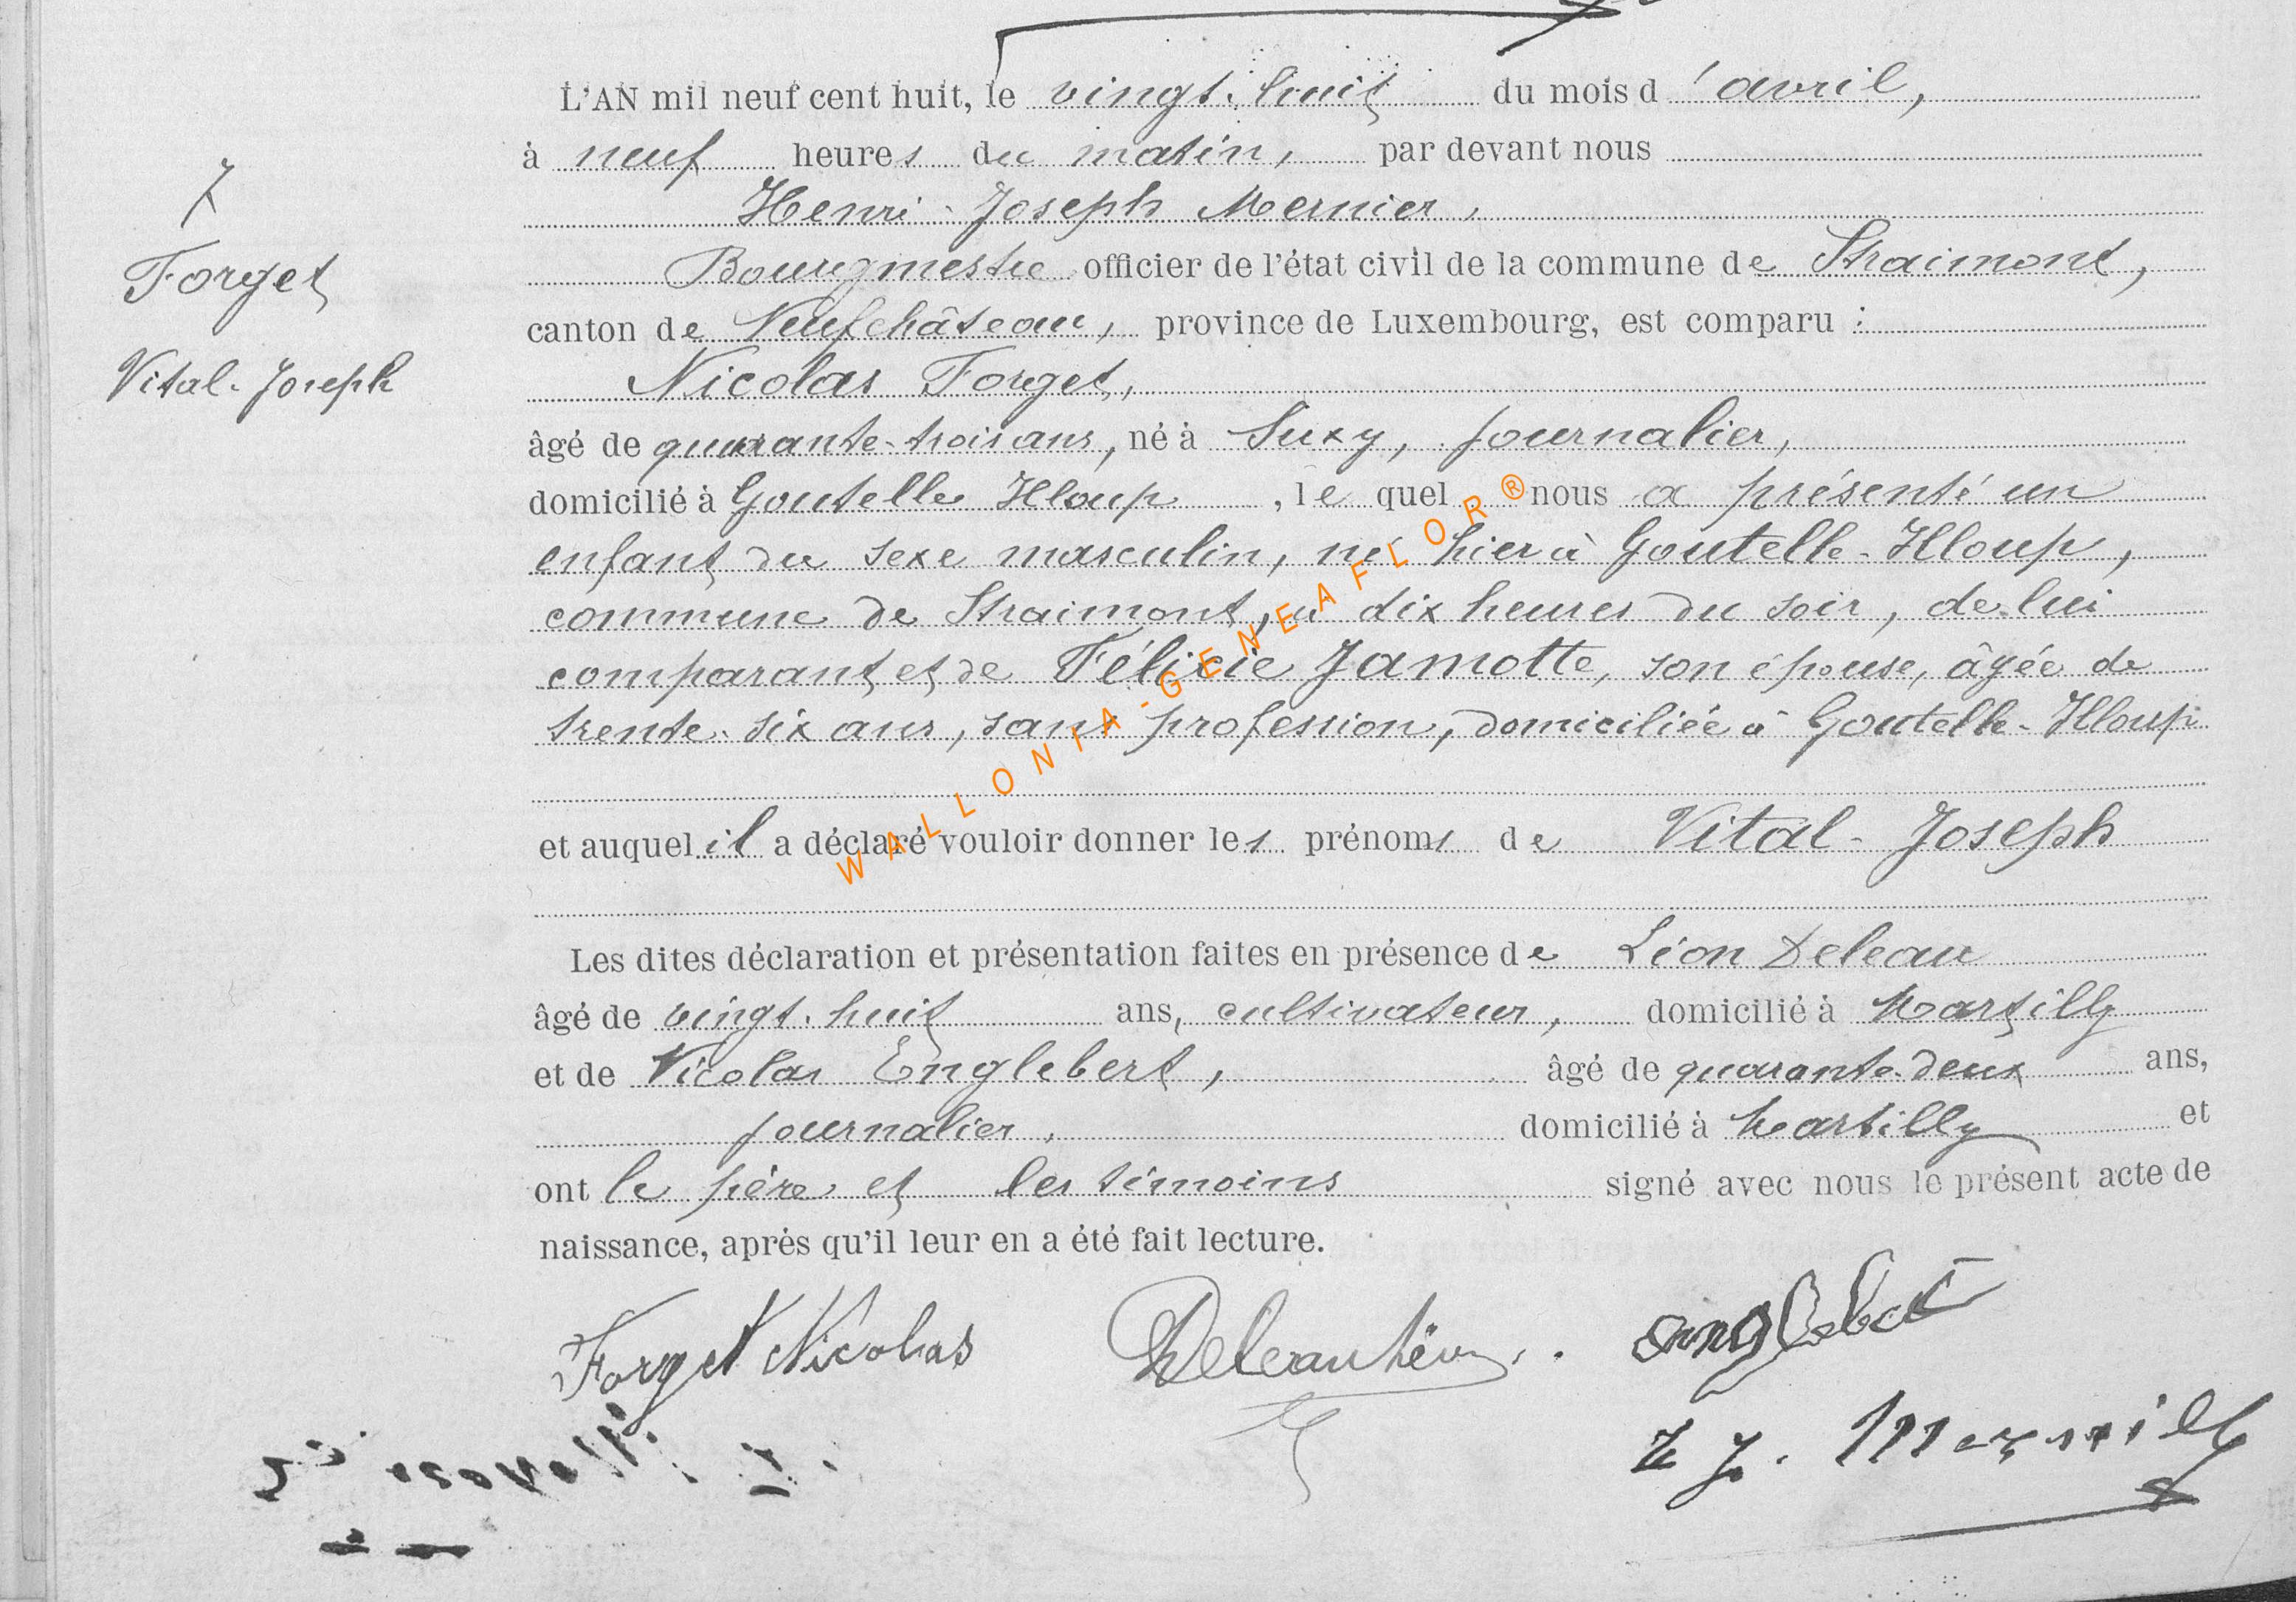 L'AN mil neuf cent huit, le vingt-huit du mois d'avril,
à neuf heures du matin, par devant nous
Henri-Joseph Mernier,
Bourgmestre officier de l'état civil de la commune de Straimont,
canton de Neufchâteau, province de Luxembourg, est comparu :
Nicolas Forget,
âgé de quarante-trois ans, né à Suxy, journalier,
domicilié à Goutelle Hloup, lequel nous a présenté un
enfant du sexe masculin, né hier à Goutelle-Hloup,
commune de Straimont, à dix heures du soir, de lui
comparant et de Félicie Jamotte, son épouse, âgée de
trente-six ans, sans profession, domiciliée à Goutelle-Hloup
et auquel il a déclaré vouloir donner les prénoms de Vital-Joseph
Les dites déclaration et présentation faites en présence de Léon Deleau
âgé de vingt-huit ans, cultivateur, domicilié à Martilly
et de Nicolas Englebert, âgé de quarante-deux ans,
journalier, domicilié à Martilly et
ont le père et les témoins signé avec nous le présent acte de
naissance, après qu'il leur en a été fait lecture.
7
Forget
Vital-Joseph
Forget Nicolas
Deleau Léon
Englebert
H J. Mernier
WALLONIA-GENEAFLOR®